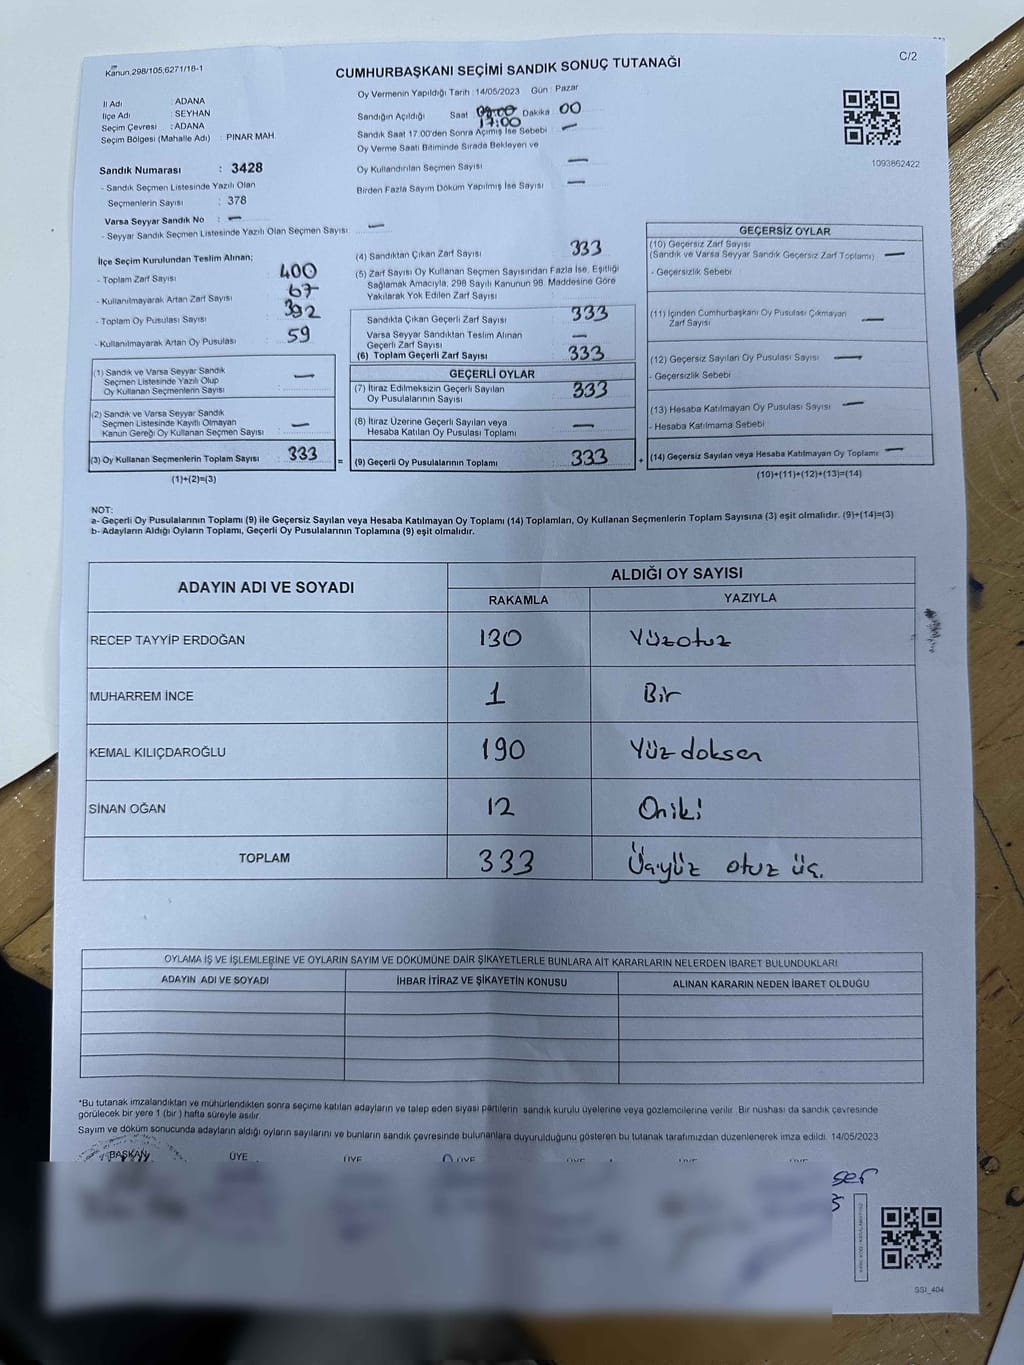 Kanun,298/105;6271/16-1
C/2
CUMHURBAŞKANI SEÇİMİ SANDIK SONUÇ TUTANAĞI
İl Adı : ADANA
İlçe Adı : SEYHAN
Seçim Çevresi : ADANA
Seçim Bölgesi (Mahalle Adı) : PINAR MAH.
Oy Vermenin Yapıldığı Tarih : 14/05/2023 Gün : Pazar
Sandığın Açıldığı Saat 17:00 Dakika 00
Sandık Saat 17.00'den Sonra Açılmış İse Sebebi —
Oy Verme Saati Bitiminde Sırada Bekleyen ve
Oy Kullandırılan Seçmen Sayısı —
Birden Fazla Sayım Döküm Yapılmış İse Sayısı —
1093862422
Sandık Numarası : 3428
- Sandık Seçmen Listesinde Yazılı Olan
Seçmenlerin Sayısı : 378
Varsa Seyyar Sandık No : —
- Seyyar Sandık Seçmen Listesinde Yazılı Olan Seçmen Sayısı: —
İlçe Seçim Kurulundan Teslim Alınan;
- Toplam Zarf Sayısı : 400
- Kullanılmayarak Artan Zarf Sayısı : 67
- Toplam Oy Pusulası Sayısı : 392
- Kullanılmayarak Artan Oy Pusulası : 59
(1) Sandık ve Varsa Seyyar Sandık
Seçmen Listesinde Yazılı Olup
Oy Kullanan Seçmenlerin Sayısı : —
(2) Sandık ve Varsa Seyyar Sandık
Seçmen Listesinde Kayıtlı Olmayan
Kanun Gereği Oy Kullanan Seçmen Sayısı : —
(3) Oy Kullanan Seçmenlerin Toplam Sayısı : 333
(1)+(2)=(3)
(4) Sandıktan Çıkan Zarf Sayısı : 333
(5) Zarf Sayısı Oy Kullanan Seçmen Sayısından Fazla İse, Eşitliği
Sağlamak Amacıyla, 298 Sayılı Kanunun 98. Maddesine Göre
Yakılarak Yok Edilen Zarf Sayısı
Sandıkta Çıkan Geçerli Zarf Sayısı : 333
Varsa Seyyar Sandıktan Teslim Alınan
Geçerli Zarf Sayısı : —
(6) Toplam Geçerli Zarf Sayısı : 333
GEÇERLİ OYLAR
(7) İtiraz Edilmeksizin Geçerli Sayılan
Oy Pusulalarının Sayısı : 333
(8) İtiraz Üzerine Geçerli Sayılan veya
Hesaba Katılan Oy Pusulası Toplamı : —
= (9) Geçerli Oy Pusulalarının Toplamı : 333 +
GEÇERSİZ OYLAR
(10) Geçersiz Zarf Sayısı
(Sandık ve Varsa Seyyar Sandık Geçersiz Zarf Toplamı) —
- Geçersizlik Sebebi
(11) İçinden Cumhurbaşkanı Oy Pusulası Çıkmayan
Zarf Sayısı —
(12) Geçersiz Sayılan Oy Pusulası Sayısı —
- Geçersizlik Sebebi
(13) Hesaba Katılmayan Oy Pusulası Sayısı —
- Hesaba Katılmama Sebebi
(14) Geçersiz Sayılan veya Hesaba Katılmayan Oy Toplamı —
(10)+(11)+(12)+(13)=(14)
NOT:
a- Geçerli Oy Pusulalarının Toplamı (9) ile Geçersiz Sayılan veya Hesaba Katılmayan Oy Toplamı (14) Toplamları, Oy Kullanan Seçmenlerin Toplam Sayısına (3) eşit olmalıdır. (9)+(14)=(3)
b- Adayların Aldığı Oyların Toplamı, Geçerli Oy Pusulalarının Toplamına (9) eşit olmalıdır.
ADAYIN ADI VE SOYADI
ALDIĞI OY SAYISI
RAKAMLA YAZIYLA
RECEP TAYYİP ERDOĞAN 130 Yüzotuz
MUHARREM İNCE 1 Bir
KEMAL KILIÇDAROĞLU 190 Yüz doksan
SİNAN OĞAN 12 Oniki
TOPLAM 333 Üçyüz otuz üç.
OYLAMA İŞ VE İŞLEMLERİNE VE OYLARIN SAYIM VE DÖKÜMÜNE DAİR ŞİKAYETLERLE BUNLARA AİT KARARLARIN NELERDEN İBARET BULUNDUKLARI
ADAYIN ADI VE SOYADI İHBAR İTİRAZ VE ŞİKAYETİN KONUSU ALINAN KARARIN NEDEN İBARET OLDUĞU
*Bu tutanak imzalandıktan ve mühürlendikten sonra seçime katılan adayların ve talep eden siyasi partilerin sandık kurulu üyelerine veya gözlemcilerine verilir. Bir nüshası da sandık çevresinde
görülecek bir yere 1 (bir) hafta süreyle asılır.
Sayım ve döküm sonucunda adayların aldığı oyların sayılarını ve bunların sandık çevresinde bulunanlara duyurulduğunu gösteren bu tutanak tarafımızdan düzenlenerek imza edildi. 14/05/2023
BAŞKAN ÜYE ÜYE ÜYE ÜYE ÜYE ÜYE
SSI_404